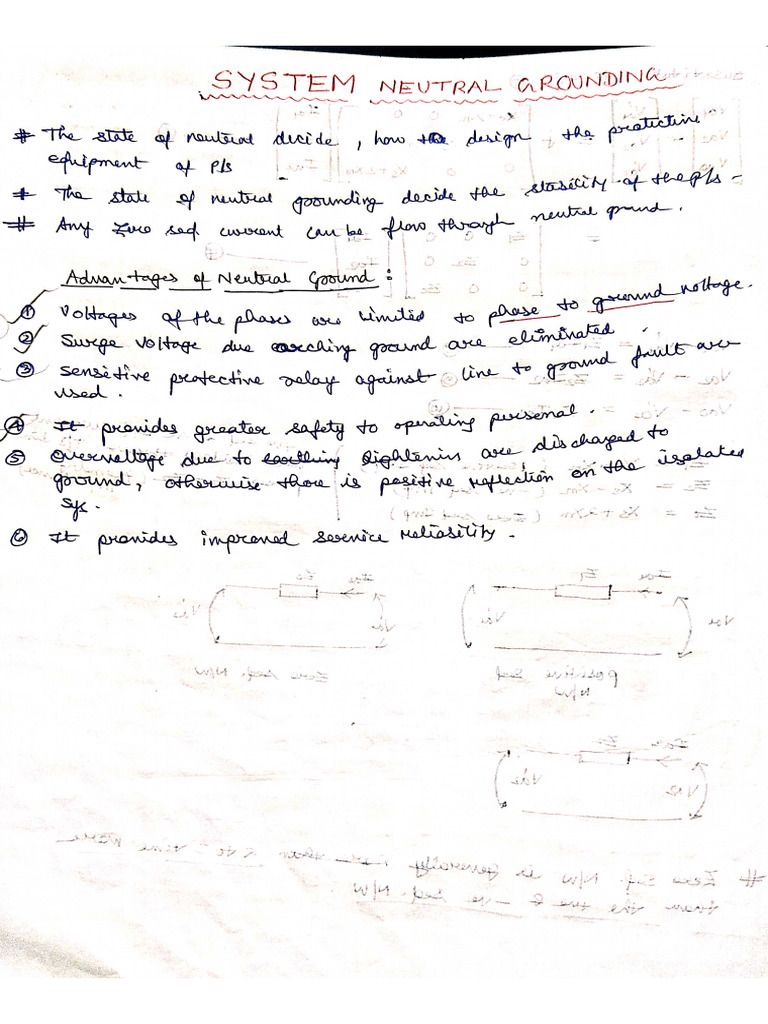 SYSTEM NEUTRAL GROUNDING
# The state of neutral decide, how the design, the protective
equipment of P/s
# The state of neutral grounding decide the stability of the P/s -
# Any zero seq current can be flow through neutral ground.
Advantages of Neutral Ground :
① Voltages of the phases are limited to phase to ground voltage.
② Surge voltage due arching ground are eliminated.
③ Sensitive protective relay against line to ground fault are
used.
④ It provides greater safety to operating personal.
⑤ Overvoltage due to lightening are discharged to
ground, otherwise there is positive reflection on the isolated
sys.
⑥ It provides improved service reliability.